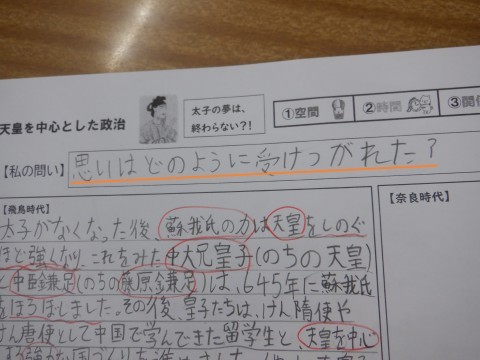 天皇を中心とした政治
太子の夢は、
終わらない?!
①空間
②時間
③関係
【私の問い】
思いはどのように受けつがれた?
【飛鳥時代】
太子がなくなった後、蘇我氏の力は天皇をしのぐ
ほど強くなり、これをみた中大兄皇子(のちの天皇)
と中臣鎌足(のちの藤原鎌足)は、645年に蘇我氏
をほろぼしました。その後、皇子たちは、けん隋使や
けん唐使として中国で学んできた留学生と、天皇を中心
【奈良時代】